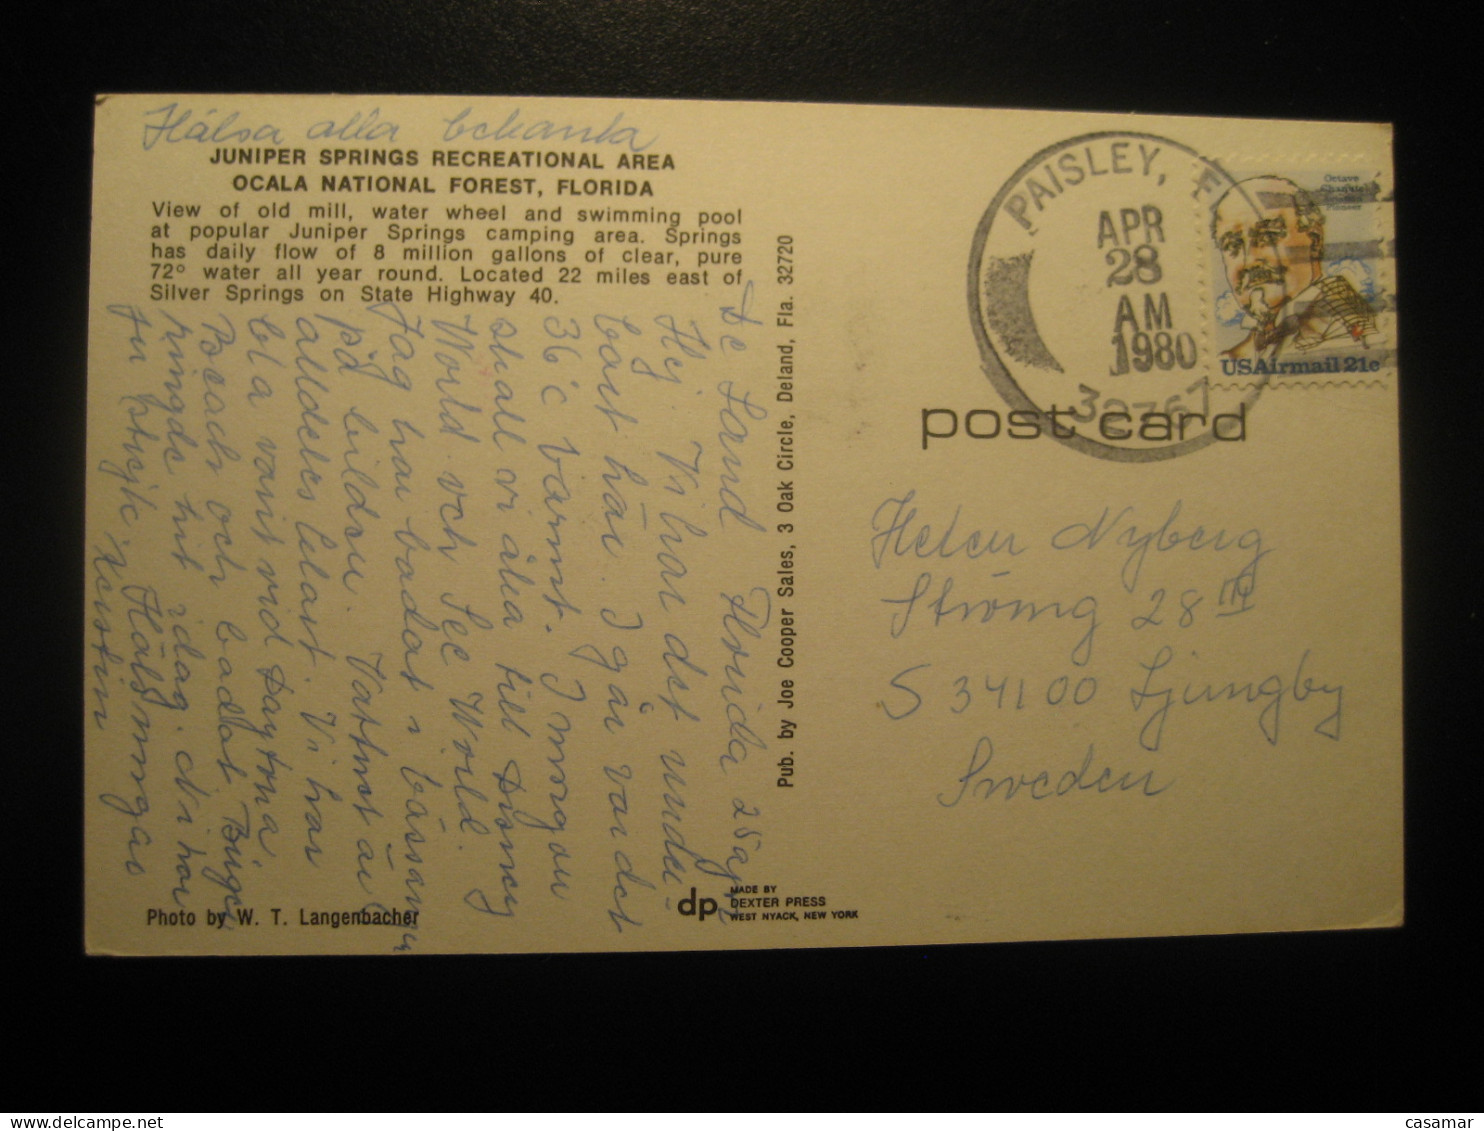 Hälsa alla bekanta
JUNIPER SPRINGS RECREATIONAL AREA
OCALA NATIONAL FOREST, FLORIDA
View of old mill, water wheel and swimming pool
at popular Juniper Springs camping area. Springs
has daily flow of 8 million gallons of clear, pure
72° water all year round. Located 22 miles east of
Silver Springs on State Highway 40.
De Land Florida 28 apr
Hej. Vi har det under-
bart här. I går var det
36°c varmt. I morgon
skall vi åka till Disney
World och See World.
Jag har badat i bassängen
på bilden. Vattnet är
alldeles klart. Vi har
bl a varit vid Daytona
Beach och badat. Birger
ringde hit idag. Ni har
ju strejk. Hälsningar
Kerstin
Photo by W. T. Langenbacher
Pub. by Joe Cooper Sales, 3 Oak Circle, Deland, Fla. 32720
dp
MADE BY
DEXTER PRESS
WEST NYACK, NEW YORK
PAISLEY, FL
APR
28
AM
1980
32767
Octave
Chanute
Aviation
Pioneer
USAirmail 21c
post card
Helen Nyberg
Ströing 28 III
S 34100 Ljungby
Sweden
casamar